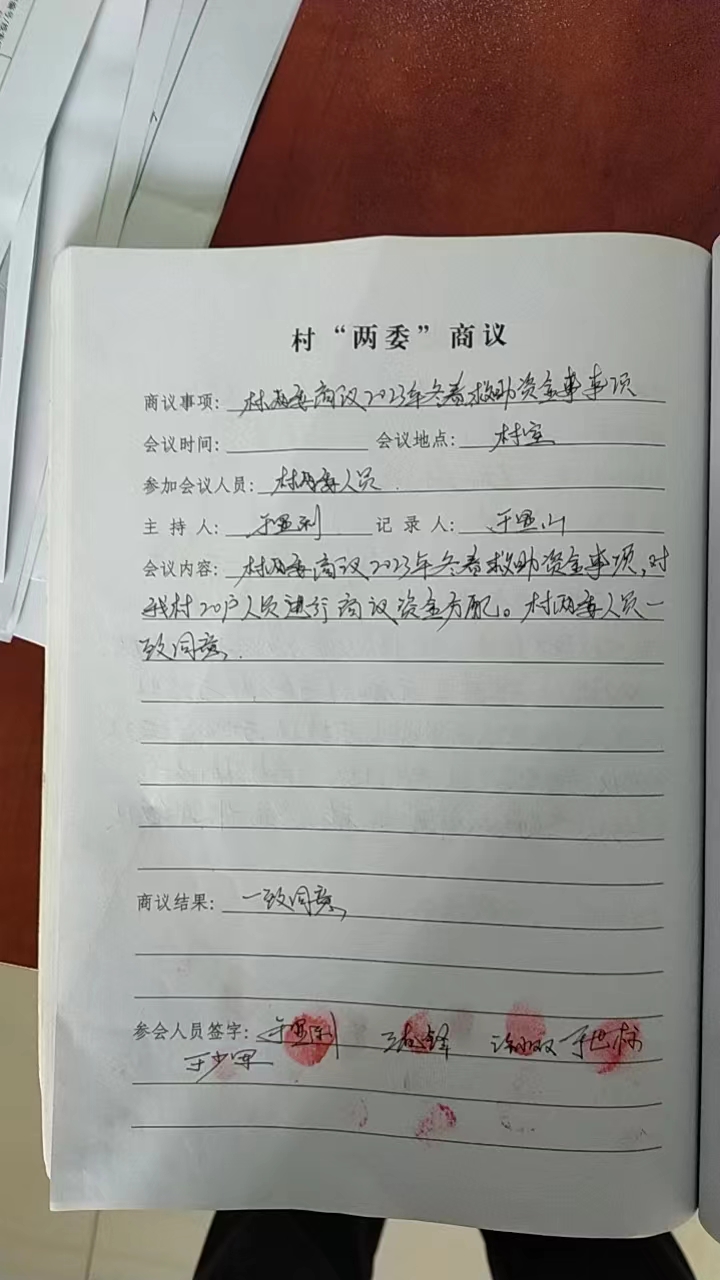 村“两委”商议
商议事项：村两委商议2023年冬春救助资金事项
会议时间： 会议地点：村室
参加会议人员：村两委人员.
主持人：于亚利 记录人：于亚山
会议内容：村两委商议2023年冬春救助资金事项，对
我村20户人员进行商议资金分配。村两委人员一
致同意.
商议结果：一致同意
参会人员签字：于亚利
于少军